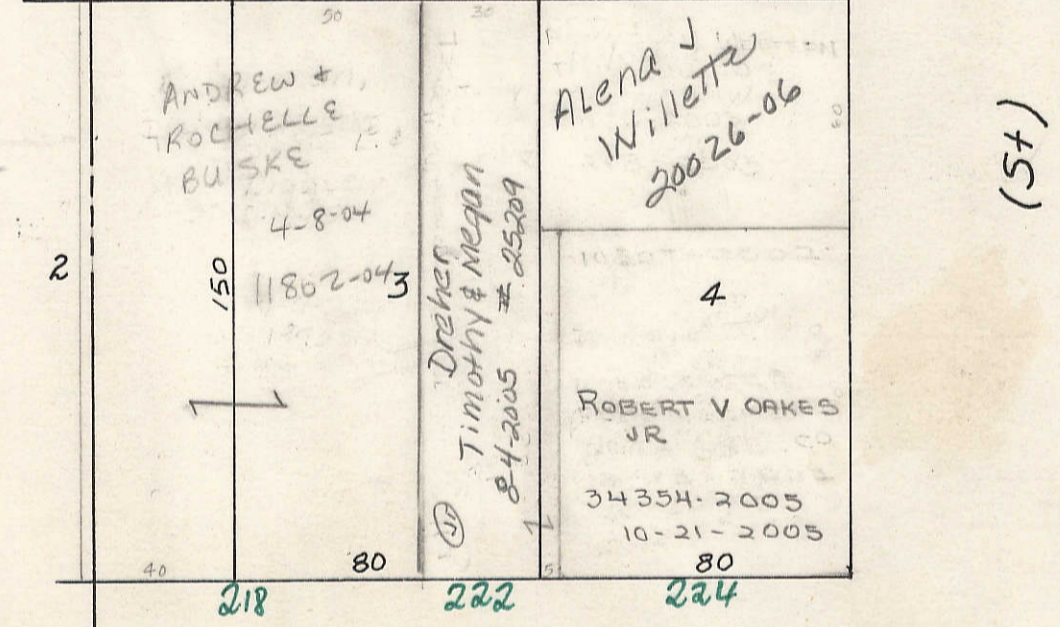 50
30
ANDREW &
ROCHELLE
BUSKE
4-8-04
11802-04
2
150
3
40
80
218
Dreher
Timothy & Megan
8-4-2005 # 25209
222
1
Alena J.
Willette
20026-06
4
ROBERT V OAKES
JR
34354-2005
10-21-2005
5
80
224
(5+)